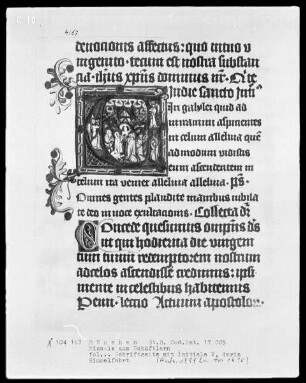 C 10
4/67
deuocionis affectus: quo tuuo v
ingenito. tecum est nostra substan
cia. ihus xpus dominus nr. Cu te
Indie sancto
Viri galylei quid ad
miramini aspicientes
in celum alleluia quem
ad modum vidistis
eum ascendentem in
celum ita veniet alleluia alleluia. ps.
Omnes gentes plaudite manibus iubila
te deo in uoce exultacionis. Collecta
Concede quesumus omnipens ds
ut qui hodierna die vnigeni
tum tuum redemptorem nostrum
ad celos ascendisse credimus: ipsi
mente in celestibus habitemus
Per. lectio Actuum apostolor.
München St.B. Cod.lat. 17 005
Missale aus
fol... Schriftseite mit Initiale V, darin
Himmelfahrt